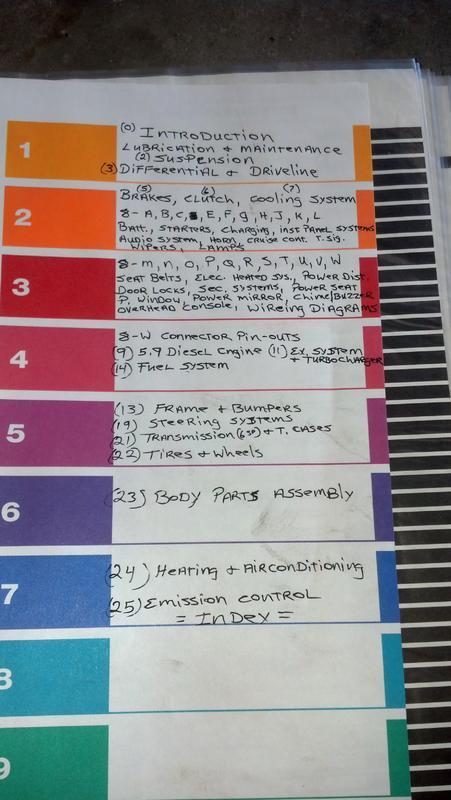 1
(0) Introduction
Lubrication + Maintenance
(2) Suspension
(3) Differential + Driveline
2
(5) (6) (7)
Brakes, Clutch, Cooling System
8-A, B, C, E, F, G, H, J, K, L
Batt., Starters, Charging, Inst Panel Systems
Audio System, Horn, Cruise Cont. T. Sig.
Wipers, Lamps
3
8-M, N, O, P, Q, R, S, T, U, V, W
Seat Belts, Elec. Heated Sys., Power Dist.
Door Locks, Sec. Systems, Power Seat
P. Window, Power Mirror, Chime/Buzzer
Overhead Console, Wireing Diagrams
4
8-W Connector Pin-outs
(9) 5.9 Diesel Engine (11) Ex. System
+ Turbocharger
(14) Fuel System
5
(13) Frame + Bumpers
(19) Steering Systems
(21) Transmission (6sp) + T. Cases
(22) Tires + Wheels
6
(23) Body Parts Assembly
7
(24) Heating + Airconditioning
(25) Emission Control
= Index =
8
9